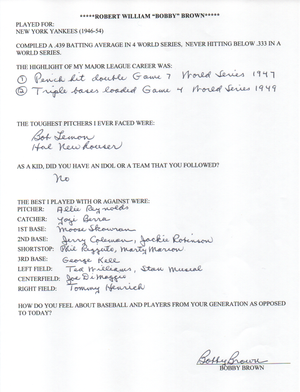 *****ROBERT WILLIAM "BOBBY" BROWN*****
PLAYED FOR:
NEW YORK YANKEES (1946-54)
COMPILED A .439 BATTING AVERAGE IN 4 WORLD SERIES, NEVER HITTING BELOW .333 IN A
WORLD SERIES.
THE HIGHLIGHT OF MY MAJOR LEAGUE CAREER WAS:
① Pench hit double Game 7 World Series 1947
② Triple bases loaded Game 4 World Series 1949
THE TOUGHEST PITCHERS I EVER FACED WERE:
Bob Lemon
Hal Newhouser
AS A KID, DID YOU HAVE AN IDOL OR A TEAM THAT YOU FOLLOWED?
No
THE BEST I PLAYED WITH OR AGAINST WERE:
PITCHER: Allie Reynolds
CATCHER: Yogi Berra
1ST BASE: Moose Skowran
2ND BASE: Jerry Coleman, Jackie Robinson
SHORTSTOP: Phil Rizzuto, Marty Marion
3RD BASE: George Kell
LEFT FIELD: Ted Williams, Stan Musial
CENTERFIELD: Joe DiMaggio
RIGHT FIELD: Tommy Henrich
HOW DO YOU FEEL ABOUT BASEBALL AND PLAYERS FROM YOUR GENERATION AS OPPOSED
TO TODAY?
Bobby Brown
BOBBY BROWN